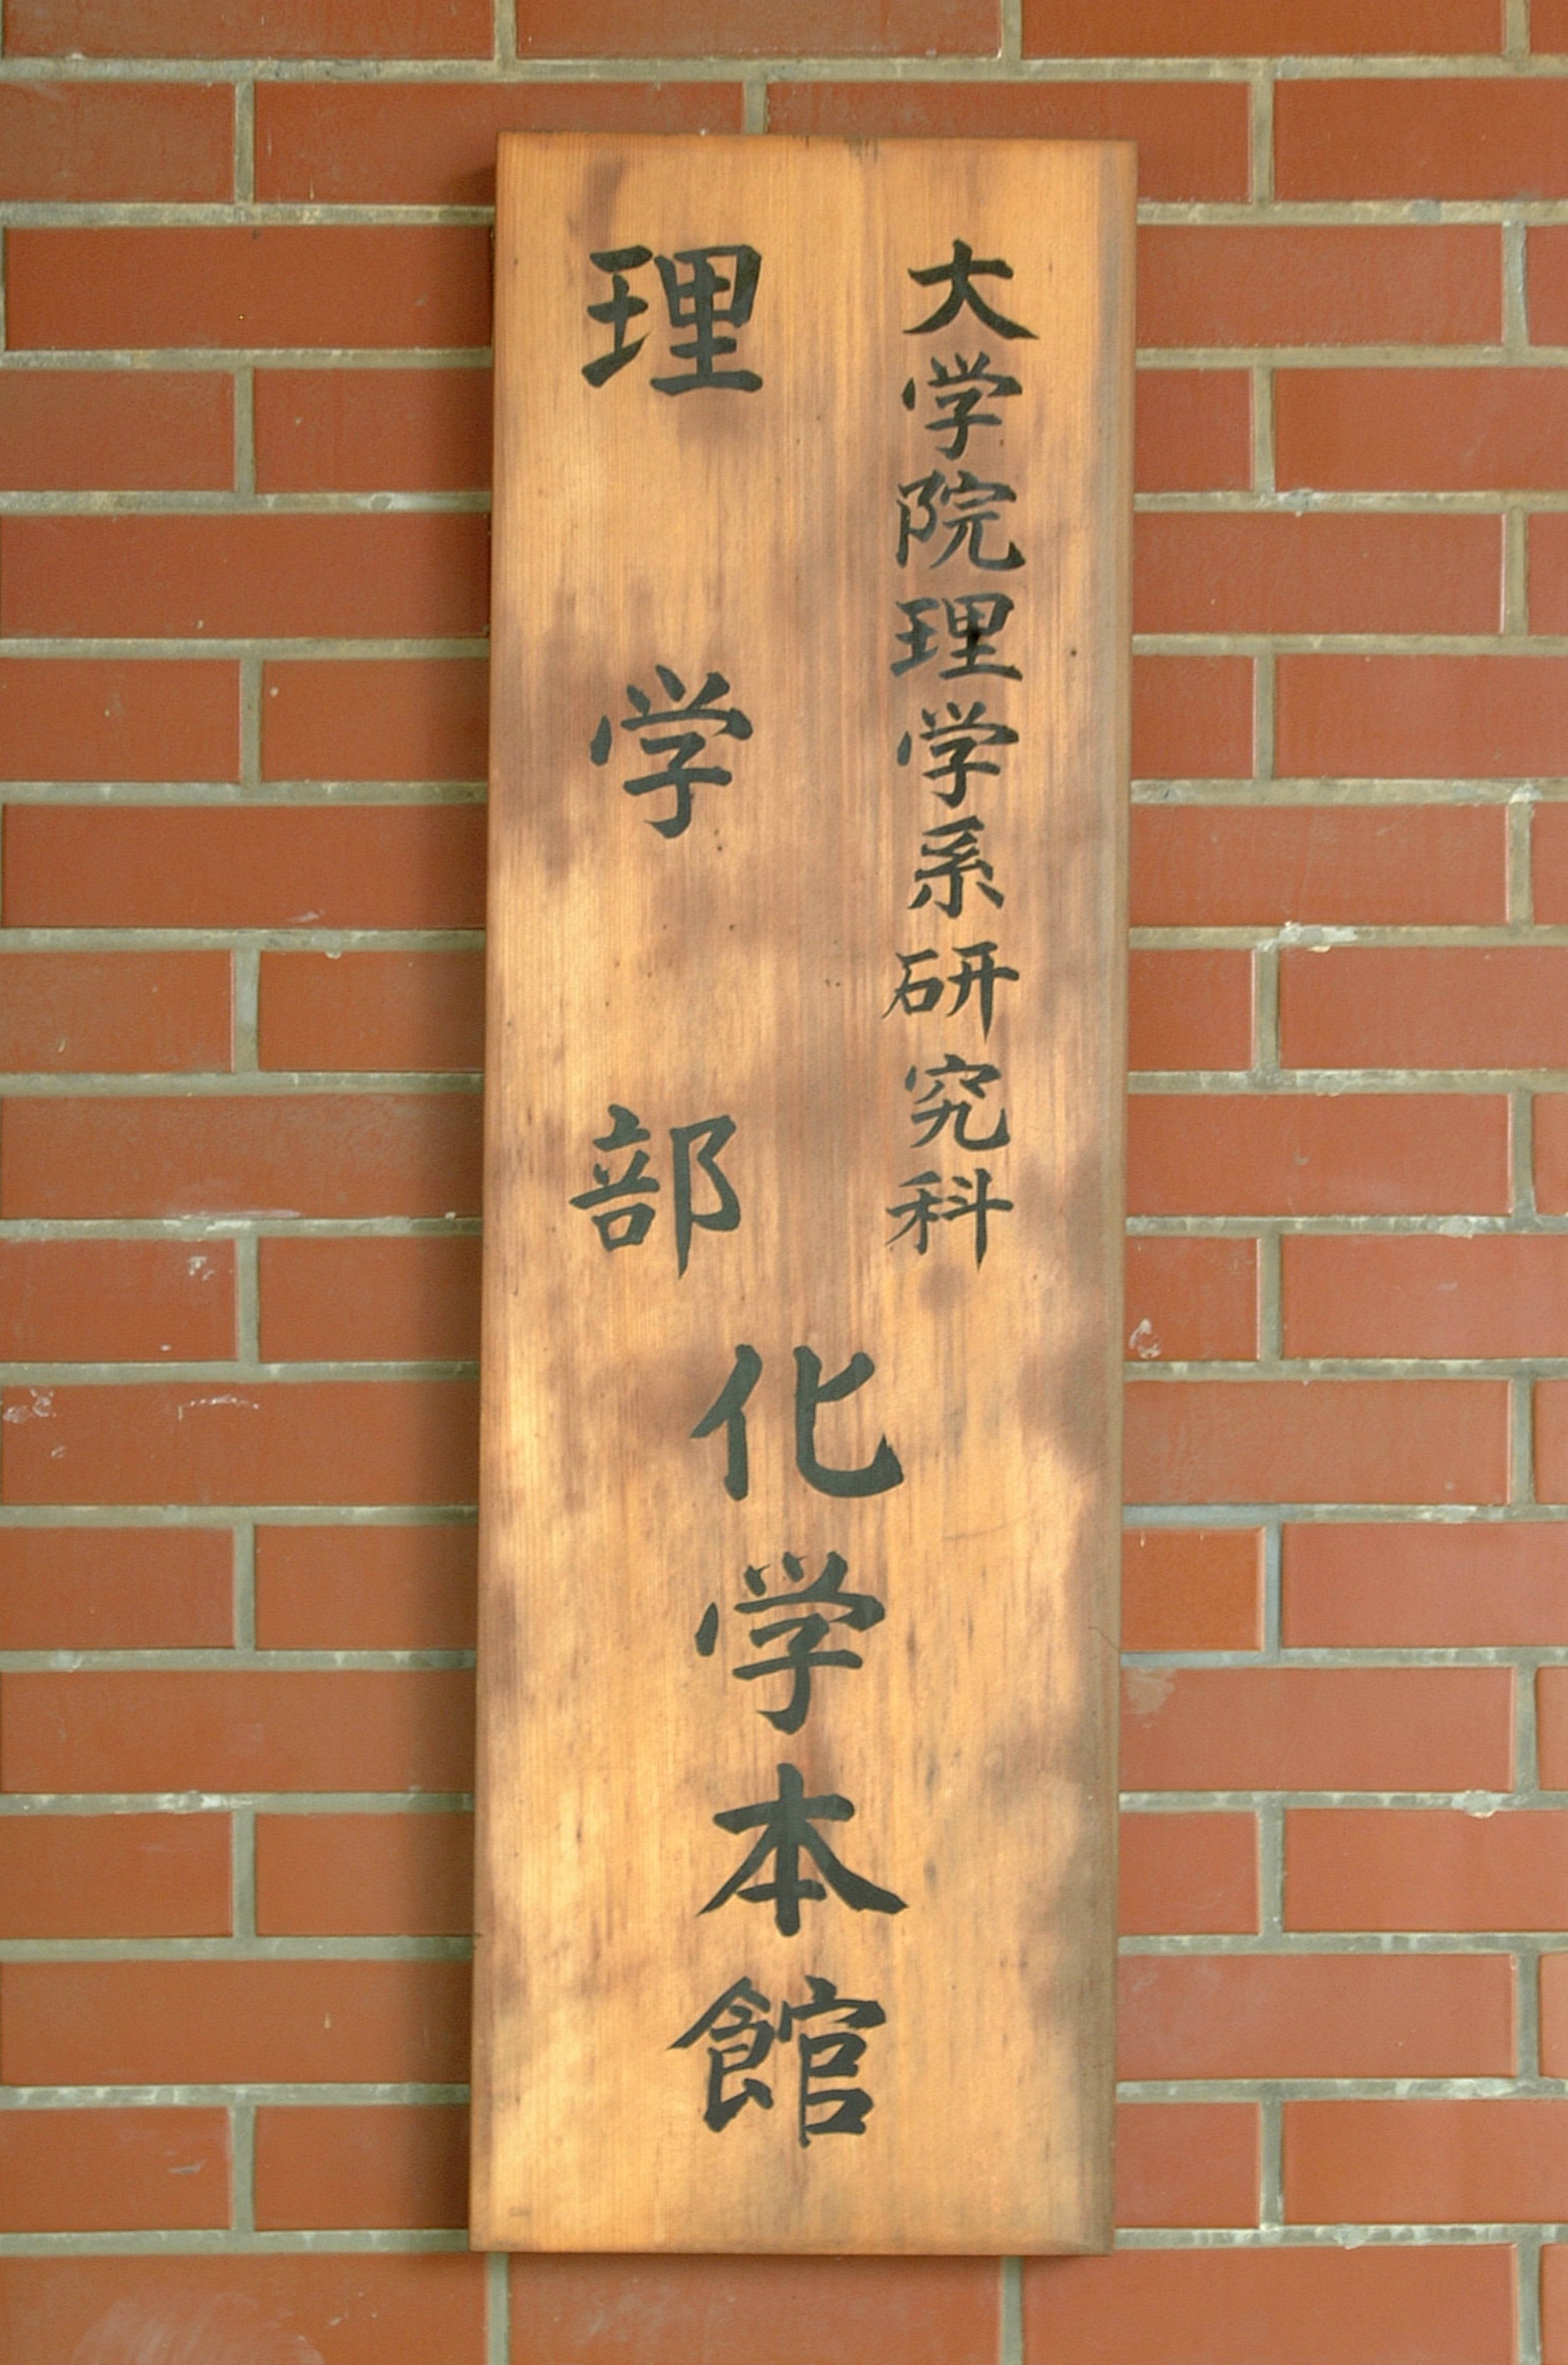 大学院理学系研究科
理学部
化学本館